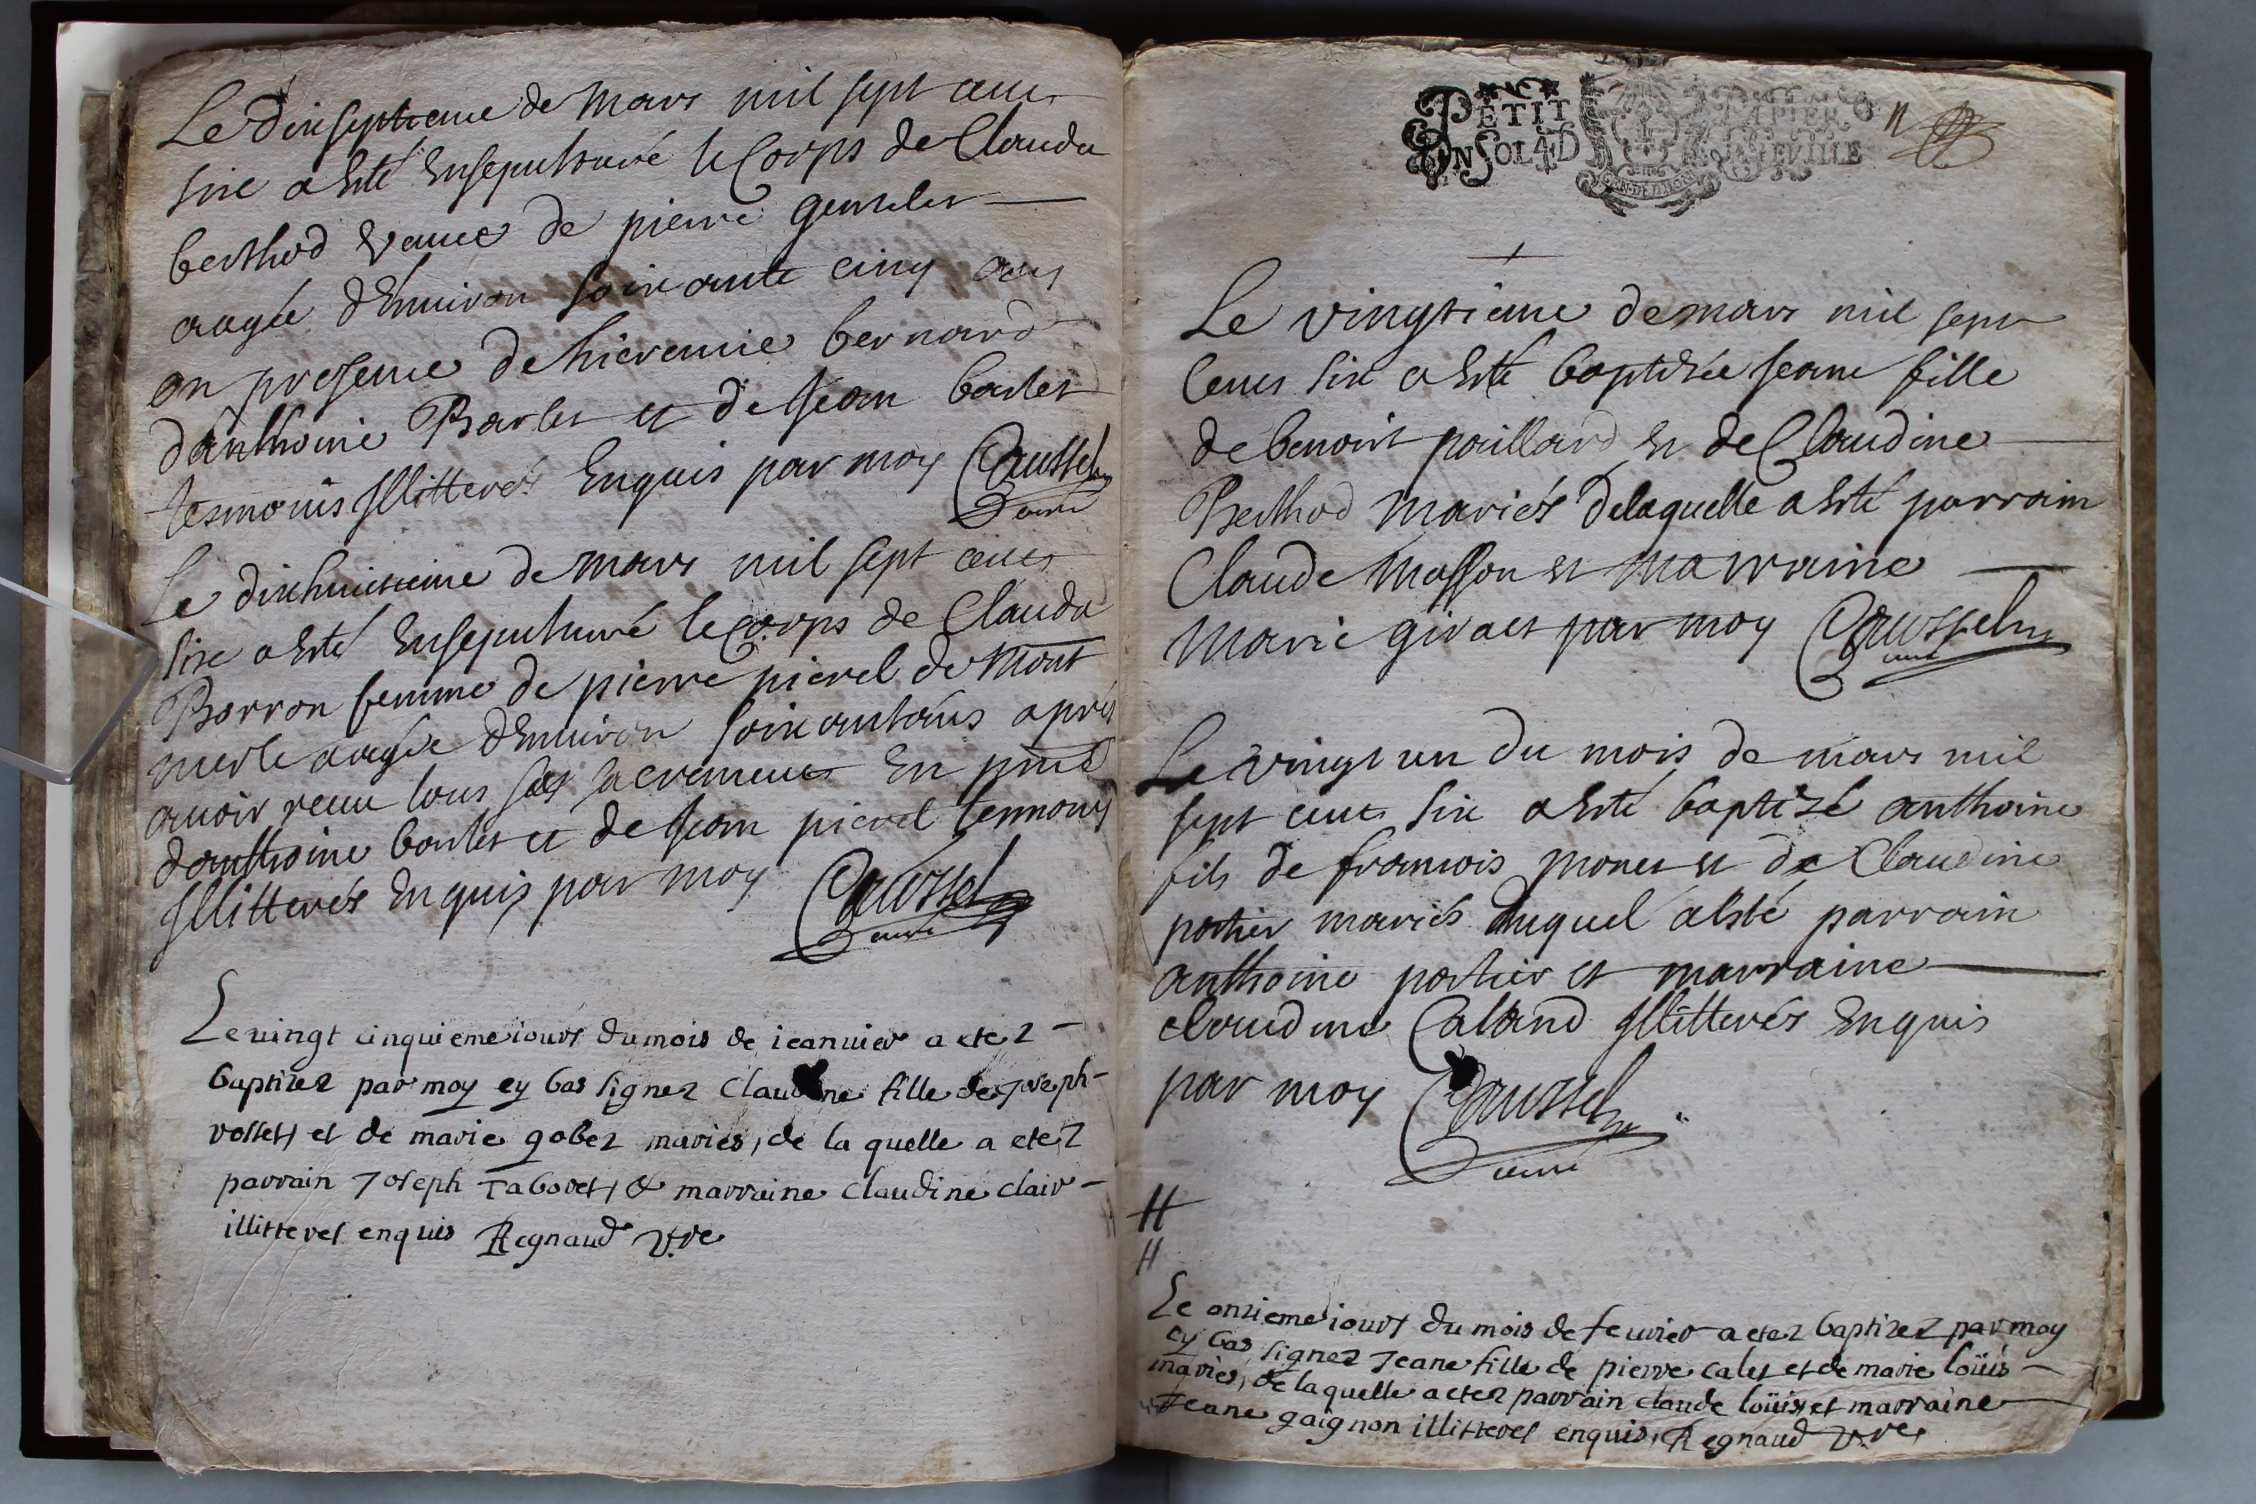 Le dixseptieme de mars mil sept cens
six a esté ensepulturé le Corps de Clauda
berthod veuue de pierre
aagée d'enuiron soixante cinq ans
en presence de hieremie bernard
d'anthoine Barlet et de Jean barlet
tesmoins Illitterés enquis par moy Coussel
curé
Le dixhuictieme de mars mil sept cens
six a esté ensepulturé le Corps de Clauda
Borron femme de pierre pierel de Mont
merle aagée d'enuiron soixant'ans aprés
auoir receu tous ses sacremens en pnce
d'anthoine barlet et de Jean pierel temoins
Illitterés enquis par moy Coussel
curé
Le uingt cinquieme iours du mois de ieanuier a etez
baptizez par moy cy bas signez Claudine fille de Joseph
rosset, et de marie gobez mariés, de la quelle a etez
parrain Joseph Taboret, & marraine Claudine clair
illitterés enquis Regnaud v.re
PETIT PAPIER
UN SOL 4 D LA FEUILLE
11
Le vingtieme de mars mil sept
cens six a esté baptizée Jeane fille
de benoist paillard et de Claudine
Berthod mariés de laquelle a esté parrain
Claude Masson et marraine
Marie giraet par moy Coussel
curé
Le vingt un du mois de mars mil
sept cens six a esté baptizé anthoine
fils de francois monet et de Claudine
portier mariés duquel a esté parrain
anthoine portier et marraine
claudine Caland Illitterés enquis
par moy Coussel
curé
H
H
Le onzieme iours du mois de feurier a etez baptizez par moy
cy bas signez Jeane fille de pierre calet et de marie loüis
mariés, de laquelle a etez parrain claude loüis et marraine
Jeane gaignon illitterés enquis, Regnaud v.re